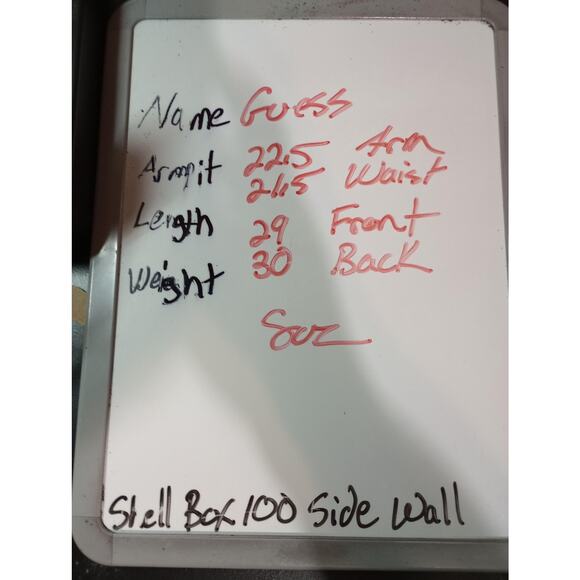 Name Guess
Armpit 22.5 Arm
21.5 Waist
Length 29 Front
30 Back
Weight
5oz
Stell Box 100 Side Wall